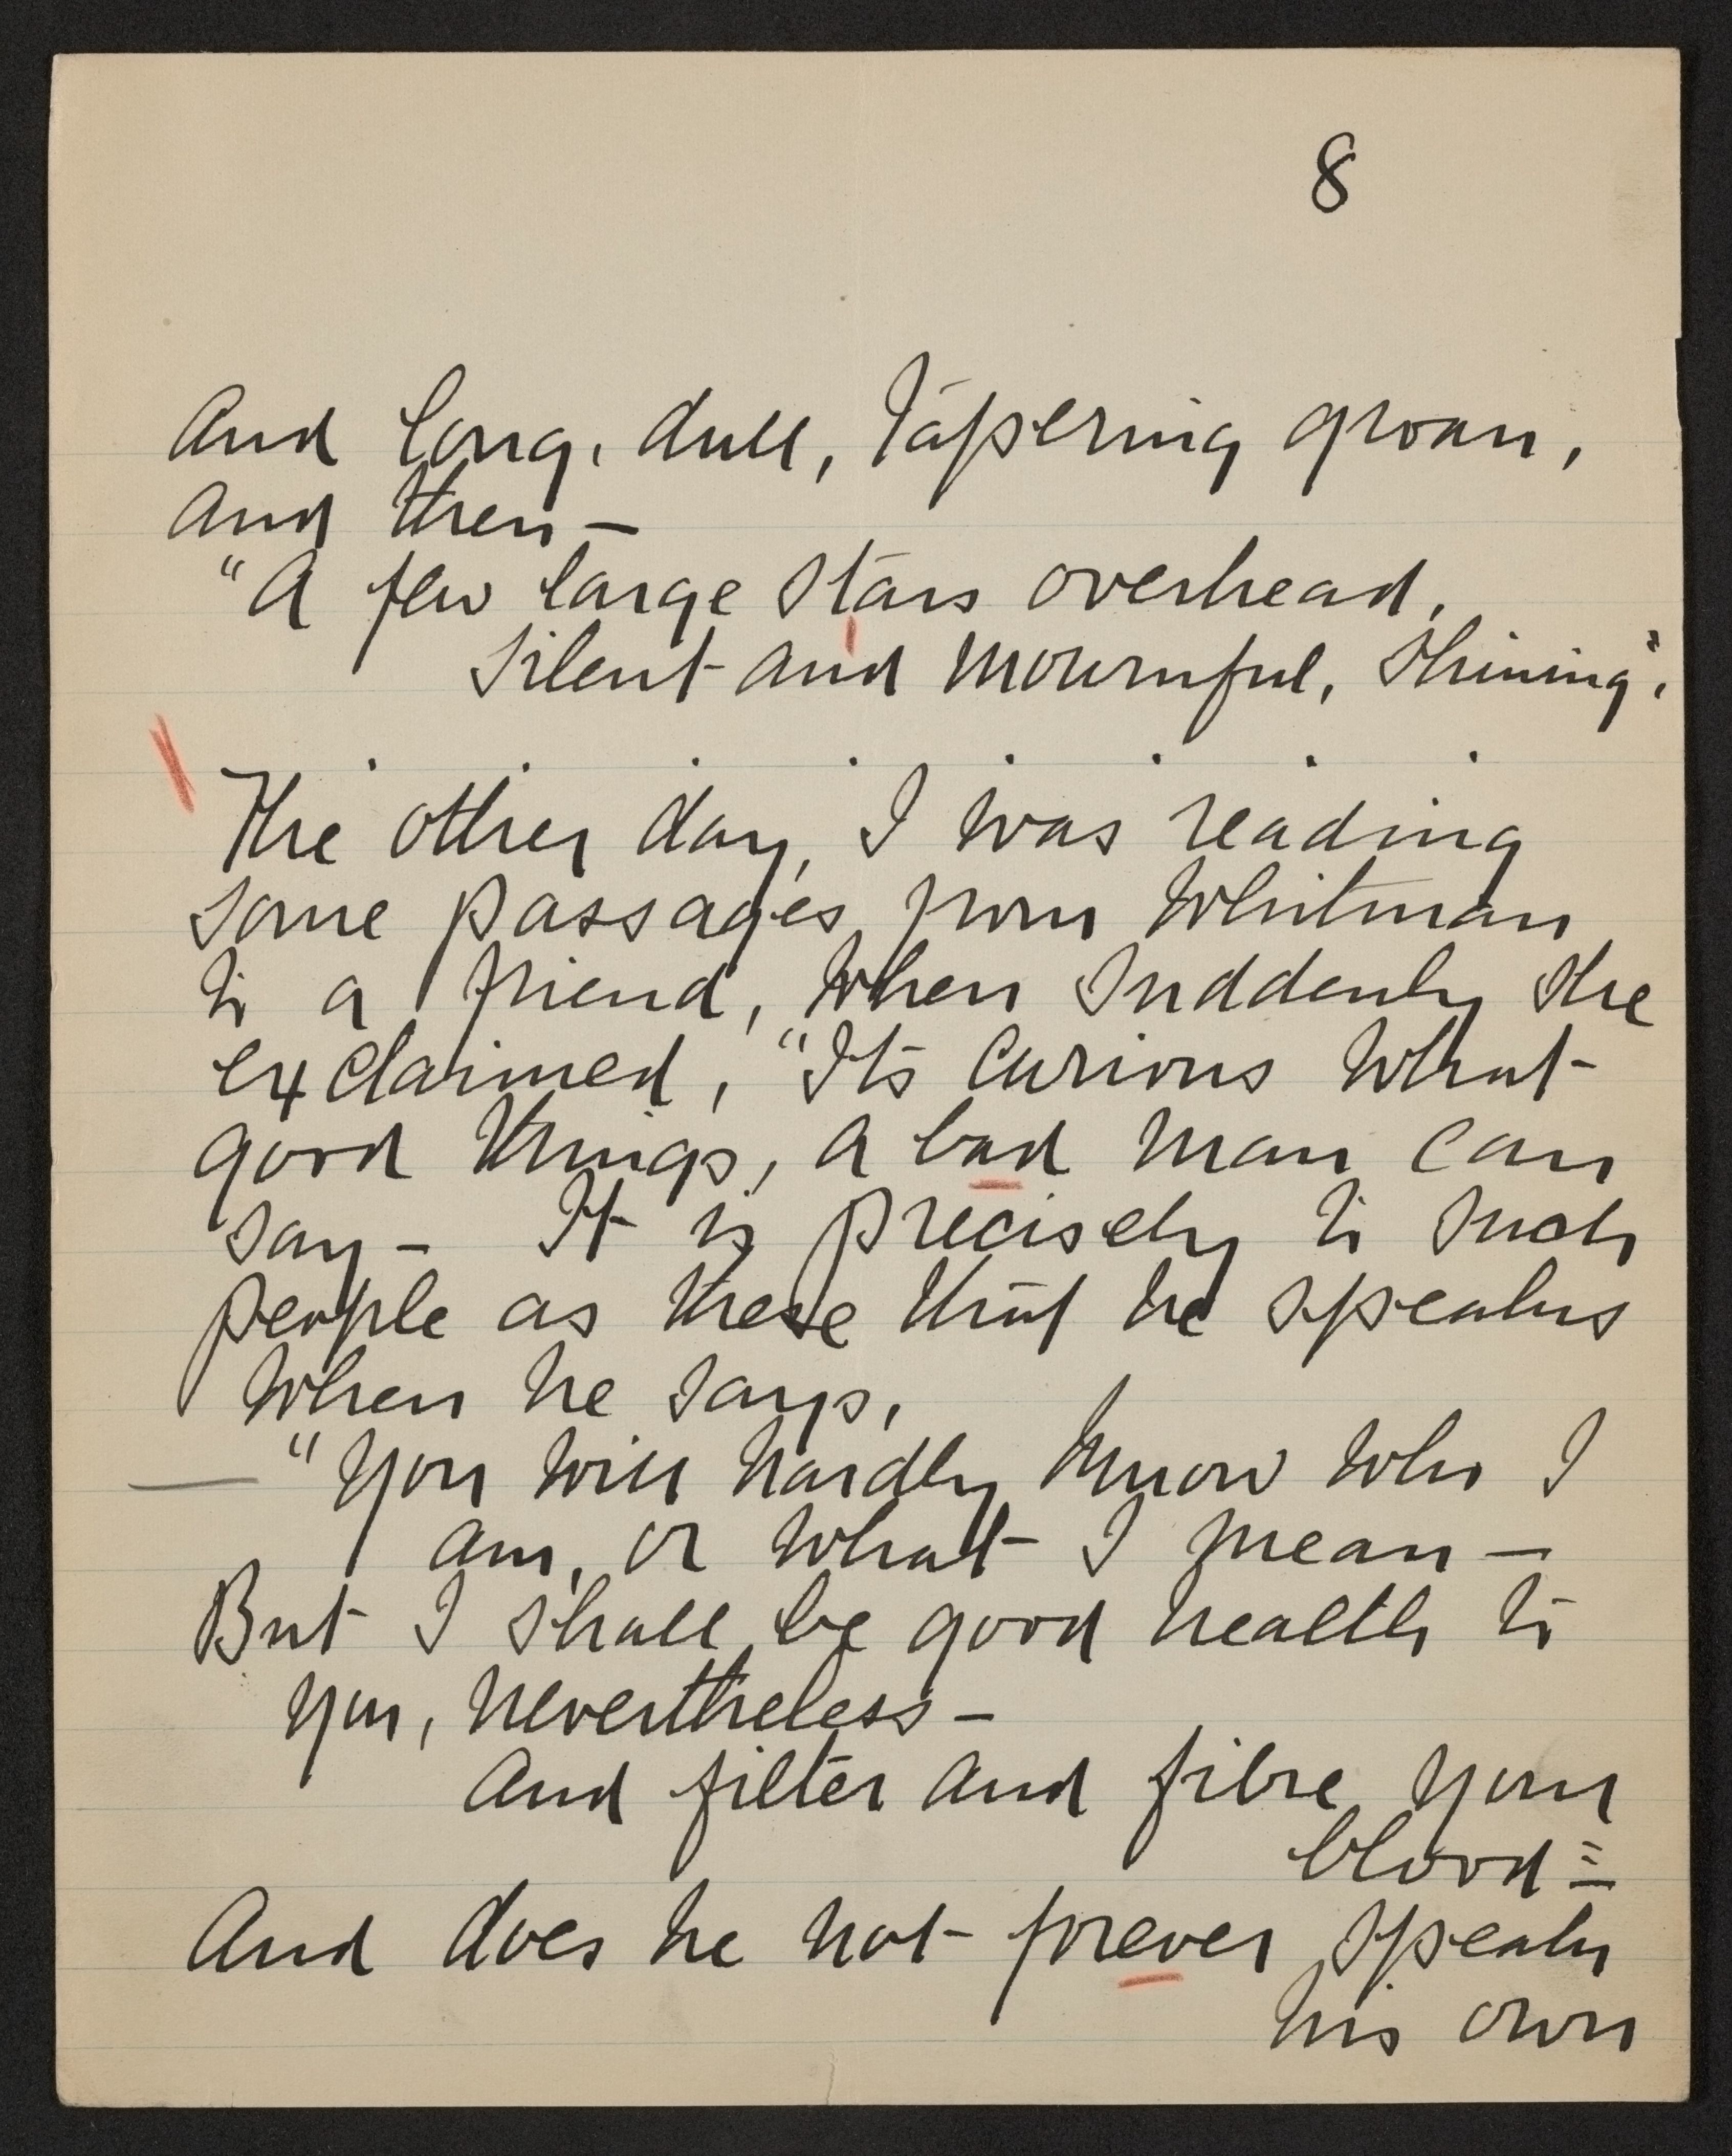 8
And long, dull, tapering groan,
And then —
"A few large stars overhead,
silent and mournful, shining".
. . . . . . . .
The other day, I was reading
some passages from Whitman
to a friend, when suddenly she
exclaimed, "Its curious what
good things, a bad man can
say — It is precisely to such
people as these that he speaks
when he says,
"You will hardly know who I
am, or what I mean —
But I shall be good health to
you, nevertheless —
And filter and fibre your
blood "—
And does he not forever speak
his own